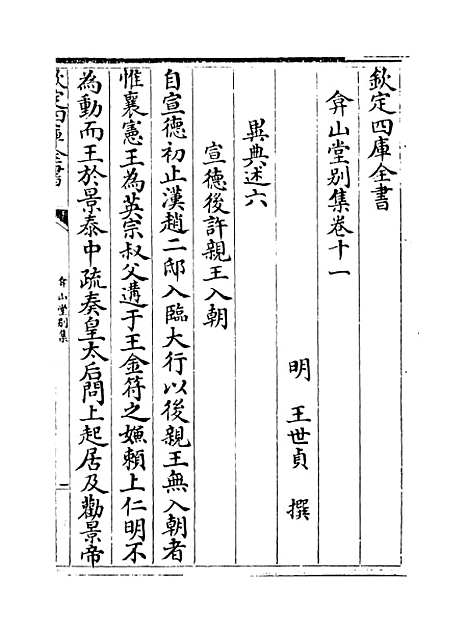 欽定四庫全書
弇山堂别集卷十一
明　王世貞　撰
異典述六
宣德後許親王入朝
自宣德初止漢趙二邸入臨大行以後親王無入朝者
惟襄憲王為英宗叔父遘于王金符之嫌賴上仁明不
為動而王於景泰中疏奏皇太后問上起居及勸景帝
欽定四庫全書
弇山堂别集
一